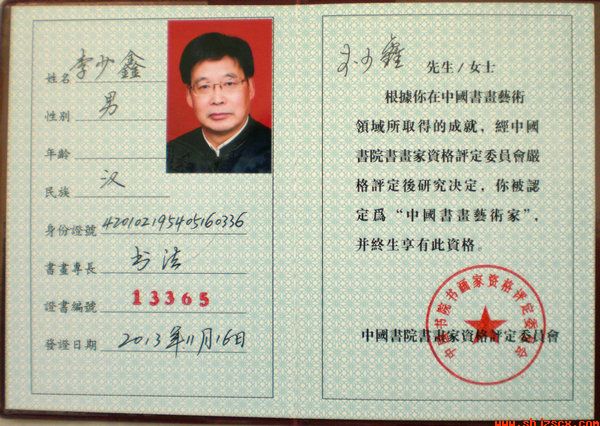 姓名 李少鑫
性別 男
年齡
民族 汉
身份證號 420102195405160336
書畫專長 书法
證書編號 13365
發證日期 2013年11月16日
李少鑫 先生/女士
根據你在中國書畫藝術
領域所取得的成就，經中國
書院書畫家資格評定委員會嚴
格評定後研究决定，你被認
定爲“中國書畫藝術家”，
并終生享有此資格。
中國書院書畫家資格評定委員會
中国书院书画家资格评定委员会
www.shjzscx.com